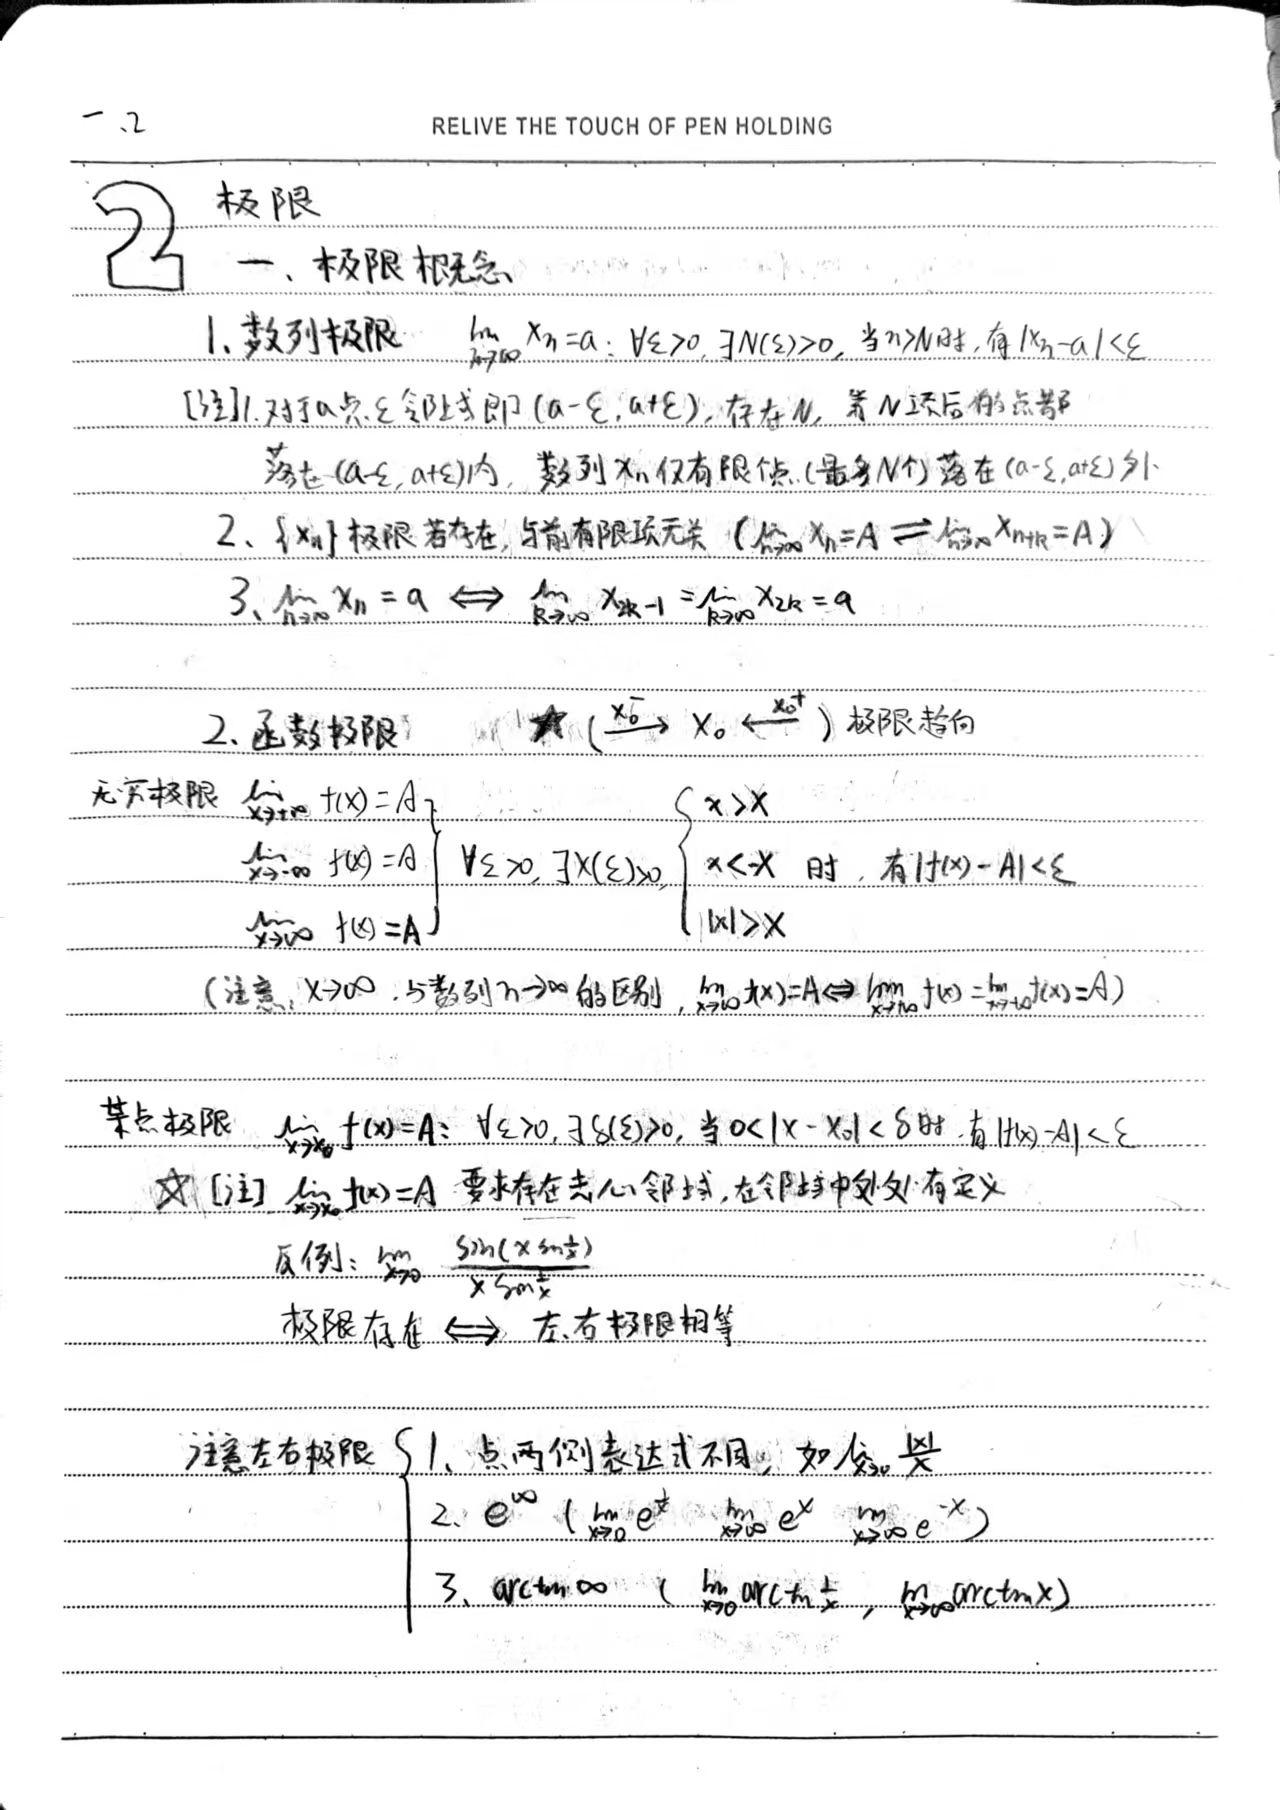 一、2
RELIVE THE TOUCH OF PEN HOLDING
2 极限
一、极限概念
1、数列极限 lim_{n→∞} xₙ=a：∀ε>0,∃N(ε)>0, 当n>N时,有|xₙ-a|<ε
[注]1.对于a点ε邻域即(a-ε,a+ε),存在N,第N项后的点都
落在(a-ε,a+ε)内,数列xₙ仅有限个点(最多N个)落在(a-ε,a+ε)外
2、{xₙ}极限若存在,与前有限项无关 (lim_{n→∞} xₙ=A ⇌ lim_{n→∞} x_{n+k}=A)
3、lim_{n→∞} xₙ=a ⟺ lim_{k→∞} x_{2k-1}=lim_{k→∞} x_{2k}=a
2、函数极限 ★ (x₀⁻→ x₀ ←x₀⁺) 极限趋向
无穷极限 lim_{x→+∞} f(x)=A
lim_{x→-∞} f(x)=A } ∀ε>0,∃X(ε)>0, { x>X
x<-X 时,有|f(x)-A|<ε
lim_{x→∞} f(x)=A |x|>X
(注意,x→∞,与数列n→∞的区别,lim_{x→∞} f(x)=A⟺lim_{x→+∞} f(x)=lim_{x→-∞} f(x)=A)
某点极限 lim_{x→x₀} f(x)=A：∀ε>0,∃δ(ε)>0,当0<|x-x₀|<δ时,有|f(x)-A|<ε
☆[注] lim_{x→x₀} f(x)=A 要求存在去心邻域,在邻域中处处有定义
反例：lim_{x→0} sin(x sin 1/x) / (x sin 1/x)
极限存在 ⟺ 左、右极限相等
注意左右极限 { 1、点两侧表达式不同,如lim_{x→0} |x|/x
2、e^∞ (lim_{x→0} e^{1/x} lim_{x→∞} e^x lim_{x→∞} e^{-x})
3、arctan∞ (lim_{x→0} arctan 1/x, lim_{x→∞} arctan x)